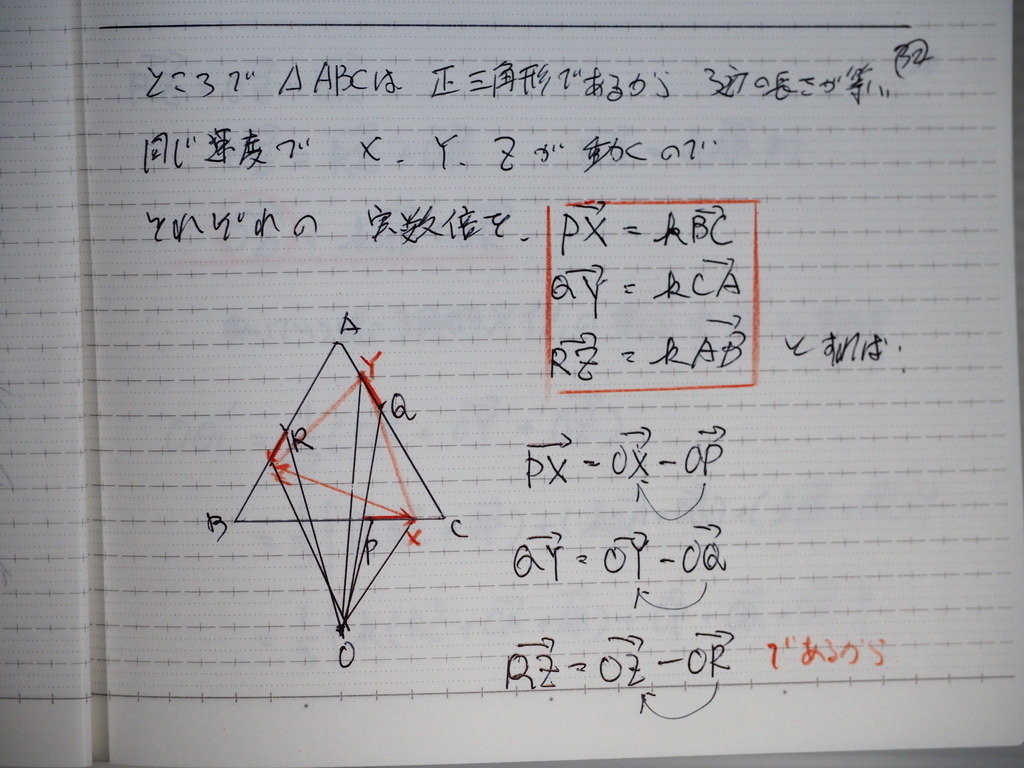 32
ところで △ABCは 正三角形であるから 3辺の長さが等しい
同じ速度で X、Y、Zが動くので
それぞれの 実数倍を、 PX→ = kBC→
QY→ = kCA→
RZ→ = kAB→ とすれば、
A
Y
Q
R
B
P
X
C
O
PX→ = OX→ − OP→
QY→ = OY→ − OQ→
RZ→ = OZ→ − OR→ であるから